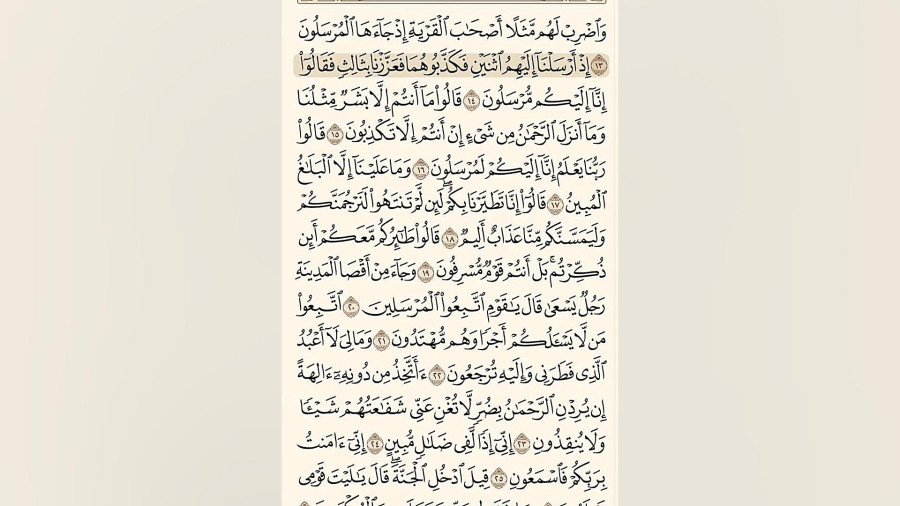 وَٱضْرِبْ لَهُم مَّثَلًا أَصْحَٰبَ ٱلْقَرْيَةِ إِذْ جَآءَهَا ٱلْمُرْسَلُونَ
١٣ إِذْ أَرْسَلْنَآ إِلَيْهِمُ ٱثْنَيْنِ فَكَذَّبُوهُمَا فَعَزَّزْنَا بِثَالِثٍ فَقَالُوٓا۟
إِنَّآ إِلَيْكُم مُّرْسَلُونَ ١٤ قَالُوا۟ مَآ أَنتُمْ إِلَّا بَشَرٌ مِّثْلُنَا
وَمَآ أَنزَلَ ٱلرَّحْمَٰنُ مِن شَىْءٍ إِنْ أَنتُمْ إِلَّا تَكْذِبُونَ ١٥ قَالُوا۟
رَبُّنَا يَعْلَمُ إِنَّآ إِلَيْكُمْ لَمُرْسَلُونَ ١٦ وَمَا عَلَيْنَآ إِلَّا ٱلْبَلَٰغُ
ٱلْمُبِينُ ١٧ قَالُوٓا۟ إِنَّا تَطَيَّرْنَا بِكُمْ ۖ لَئِن لَّمْ تَنتَهُوا۟ لَنَرْجُمَنَّكُمْ
وَلَيَمَسَّنَّكُم مِّنَّا عَذَابٌ أَلِيمٌ ١٨ قَالُوا۟ طَٰٓئِرُكُم مَّعَكُمْ ۚ أَئِن
ذُكِّرْتُم ۚ بَلْ أَنتُمْ قَوْمٌ مُّسْرِفُونَ ١٩ وَجَآءَ مِنْ أَقْصَا ٱلْمَدِينَةِ
رَجُلٌ يَسْعَىٰ قَالَ يَٰقَوْمِ ٱتَّبِعُوا۟ ٱلْمُرْسَلِينَ ٢٠ ٱتَّبِعُوا۟
مَن لَّا يَسْـَٔلُكُمْ أَجْرًا وَهُم مُّهْتَدُونَ ٢١ وَمَا لِىَ لَآ أَعْبُدُ
ٱلَّذِى فَطَرَنِى وَإِلَيْهِ تُرْجَعُونَ ٢٢ ءَأَتَّخِذُ مِن دُونِهِۦٓ ءَالِهَةً
إِن يُرِدْنِ ٱلرَّحْمَٰنُ بِضُرٍّ لَّا تُغْنِ عَنِّى شَفَٰعَتُهُمْ شَيْـًٔا
وَلَا يُنقِذُونِ ٢٣ إِنِّىٓ إِذًا لَّفِى ضَلَٰلٍ مُّبِينٍ ٢٤ إِنِّىٓ ءَامَنتُ
بِرَبِّكُمْ فَٱسْمَعُونِ ٢٥ قِيلَ ٱدْخُلِ ٱلْجَنَّةَ ۖ قَالَ يَٰلَيْتَ قَوْمِى